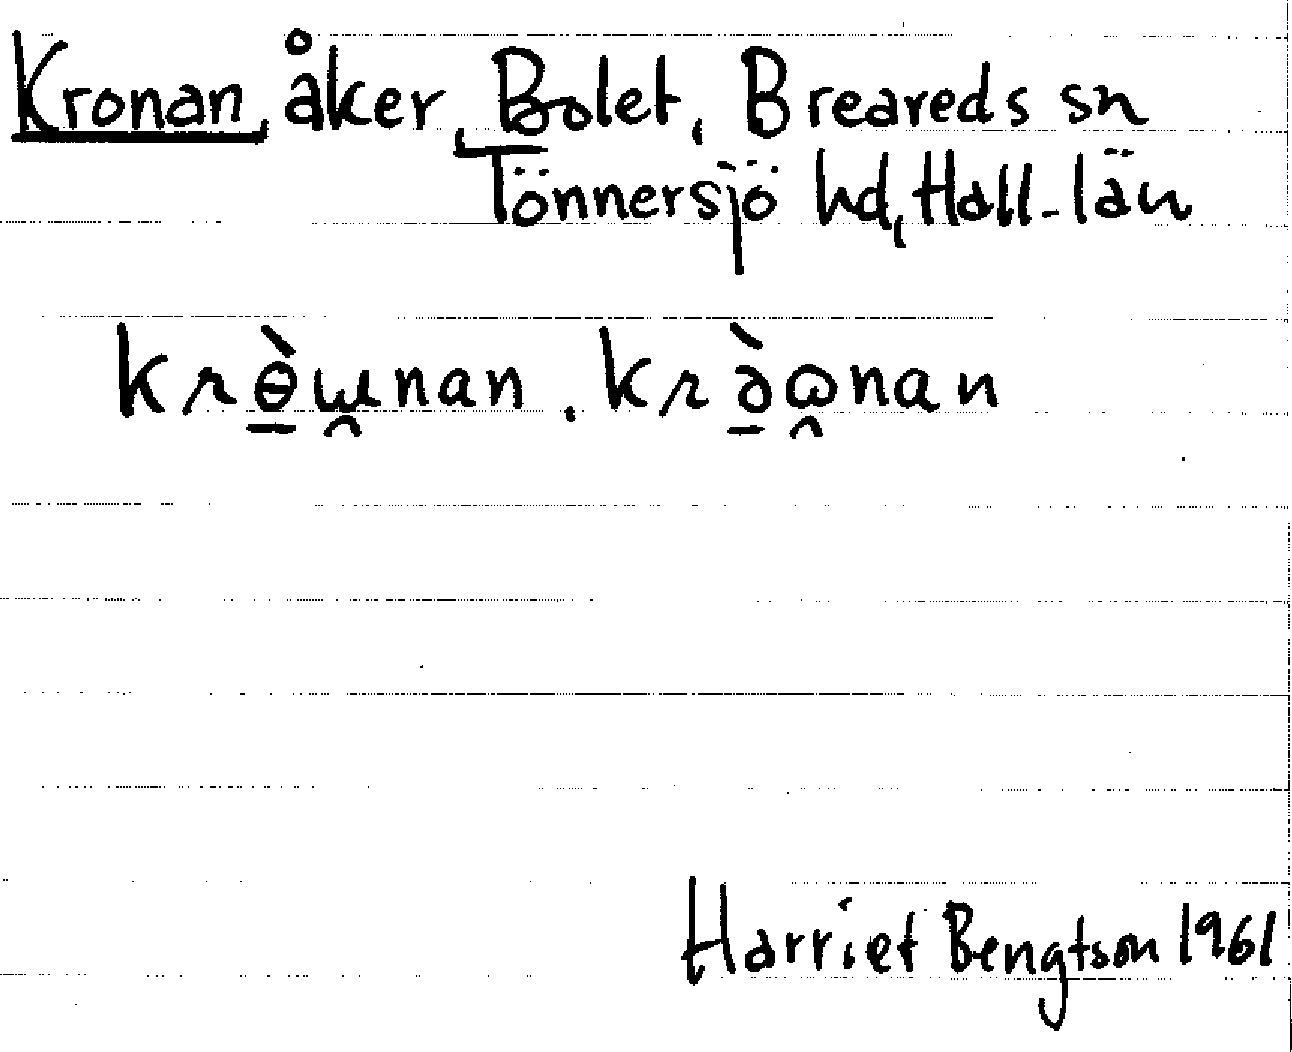 Kronan, åker, Bolet, Breareds sn
Tönnersjö hd, Hall. län
krɵ̠̀ɯ̯nan, krə̠̀ɷ̯nan
Harriet Bengtson 1961